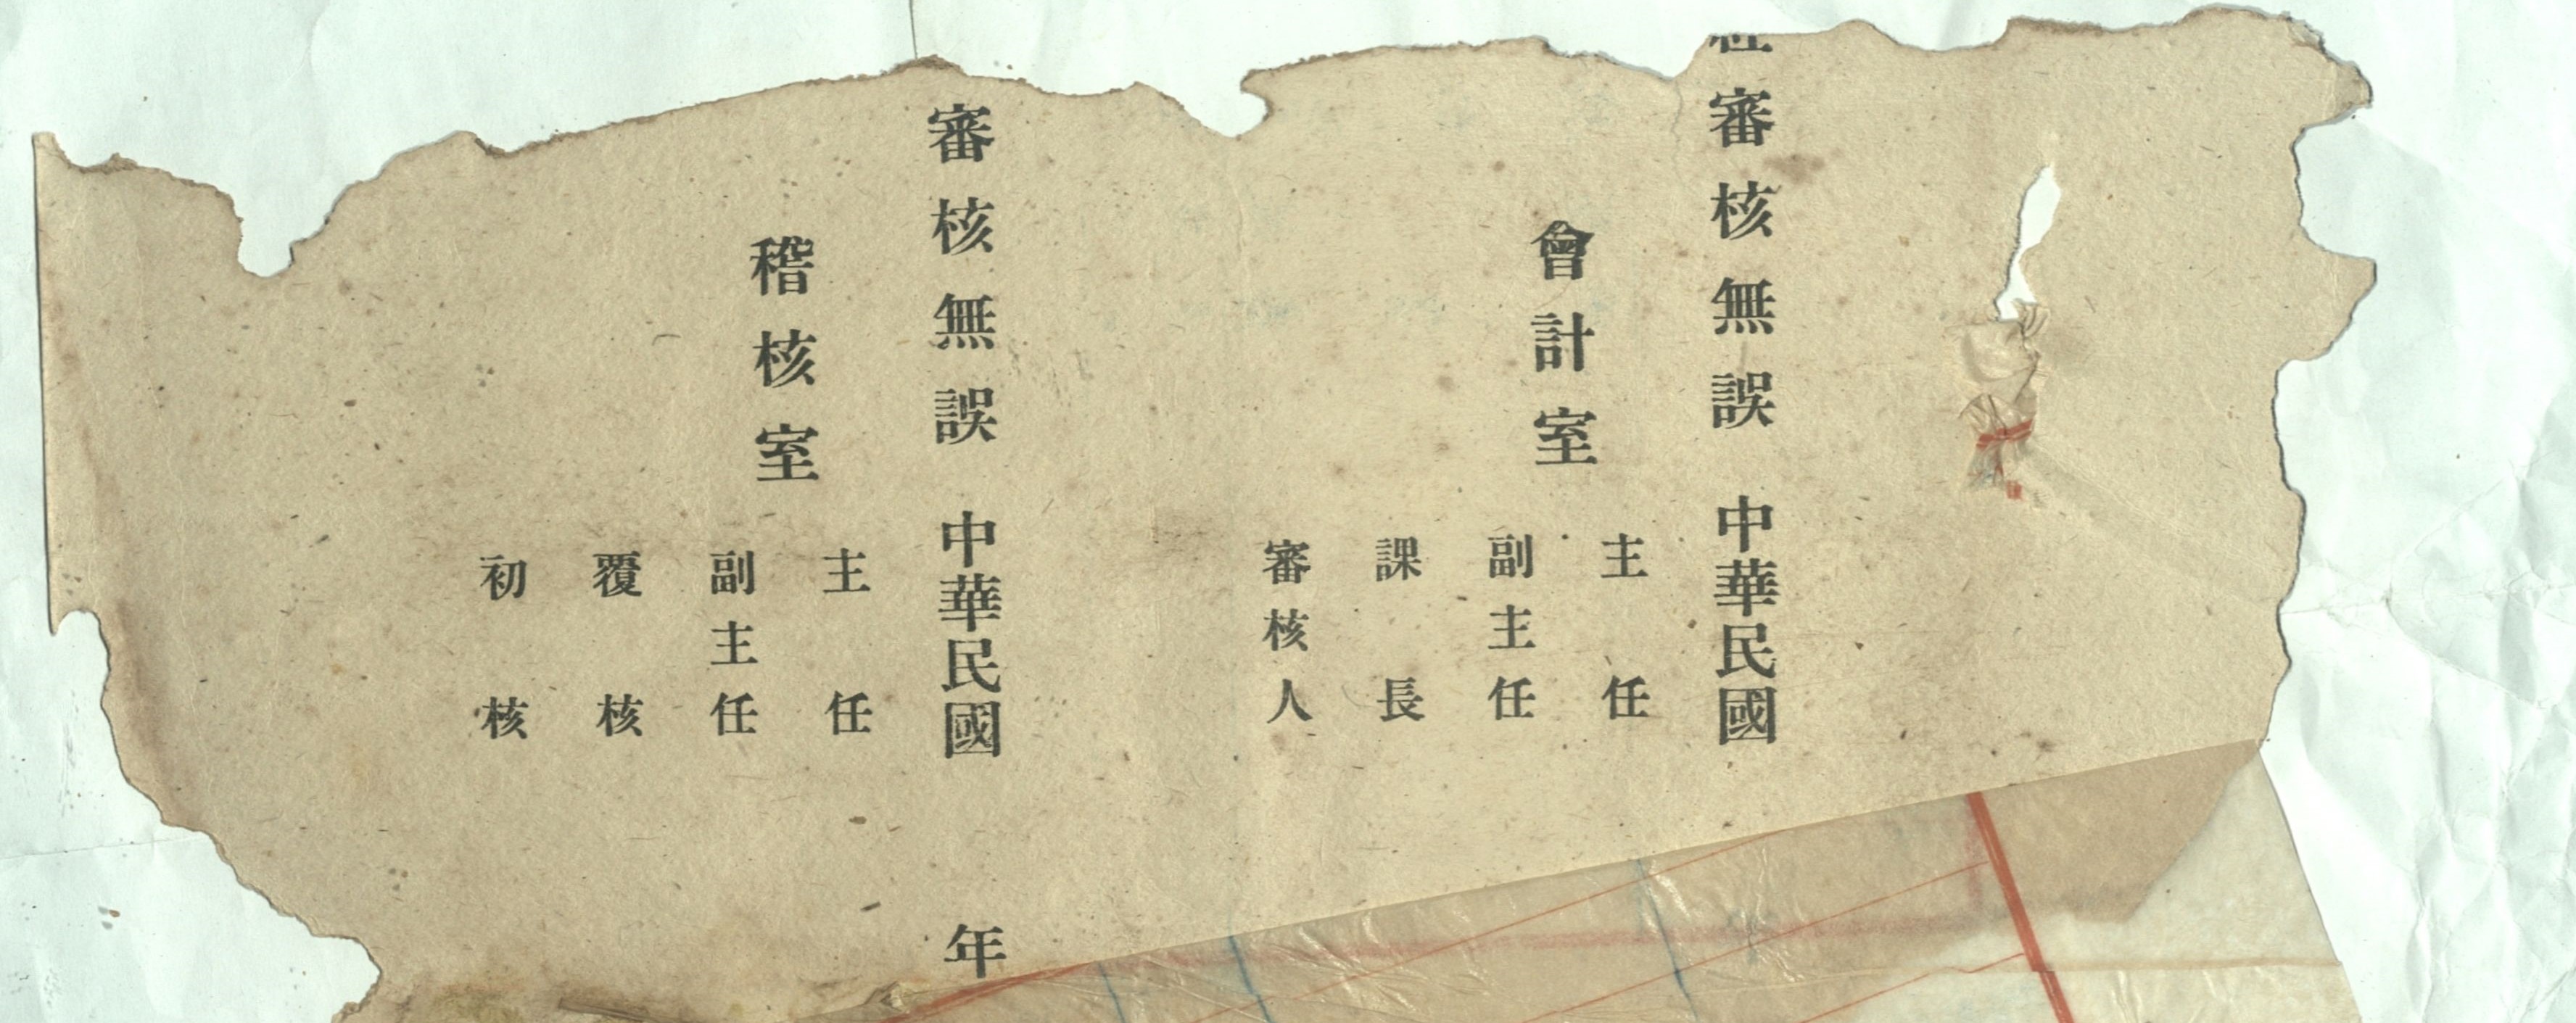 審核無誤 中華民國
會計室
主任
副主任
課長
審核人
審核無誤 中華民國 年
稽核室
主任
副主任
覆核
初核